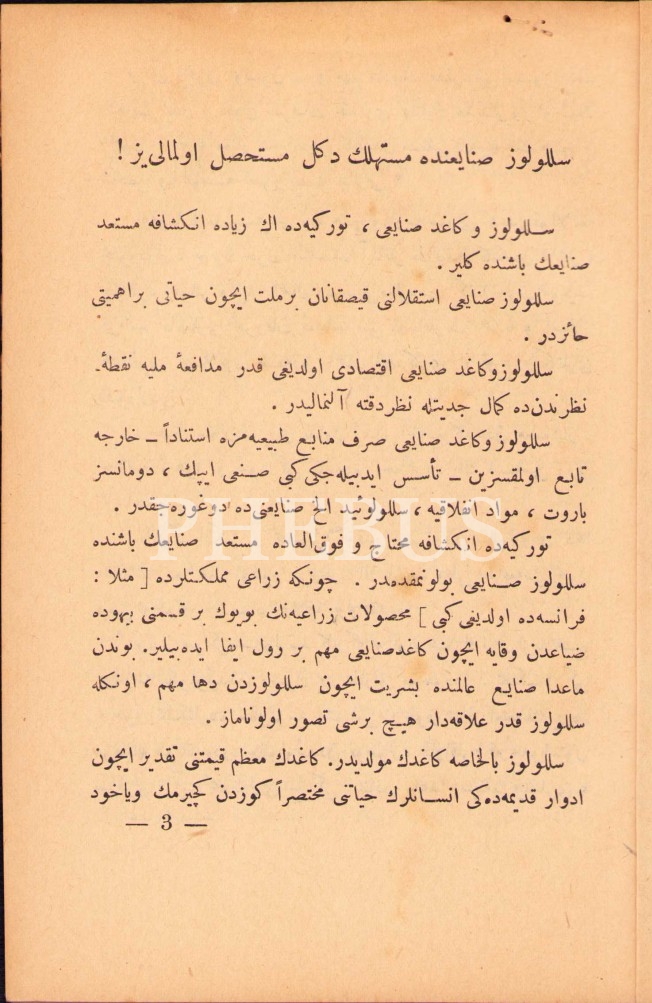 سللولوز صنایعنده مستهلك دكل مستحصل اولمالی‌یز !
سللولوز و كاغد صنایعی ، توركیه‌ده اك زیاده انكشافه مستعد
صنایعك باشنده كلیر .
سللولوز صنایعی استقلالنی قیصقانان برملت ایچون حیاتی براهمیتی
حائزدر .
سللولوزوكاغد صنایعی اقتصادی اولدیغی قدر مدافعۀ ملیه نقطۀ‌
نظرندن‌ده كمال جدیتله نظردقته آلنمالیدر .
سللولوز وكاغد صنایعی صرف منابع طبیعیه‌مزه استناداً – خارجه
تابع اولمقسزین – تأسس ایدبیله‌جكی كبی صنعی ایپك ، دومانسز
باروت ، مواد انفلاقیه ، سللولوئید الخ صنایعنی‌ده دوغوره‌جقدر .
PHEBUS
توركیه‌ده انكشافه محتاج و فوق‌العاده مستعد صنایعك باشنده
سللولوز صنایعی بولونمقده‌در . چونكه زراعی مملكتلرده [ مثلا :
فرانسه‌ده اولدیغی كبی ] محصولات زراعیه‌نك بویوك بر قسمنی بیهوده
ضیاعدن وقایه ایچون كاغدصنایعی مهم بر رول ایفا ایده‌بیلیر. بوندن
ماعدا صنایع عالمنده بشریت ایچون سللولوزدن دها مهم ، اونكله
سللولوز قدر علاقه‌دار هیچ برشی تصور اولوناماز .
سللولوز بالخاصه كاغدك مولدیدر. كاغدك معظم قیمتنی تقدیر ایچون
ادوار قدیمه‌ده‌كی انسانلرك حیاتنی مختصراً كوزدن كچیرمك ویاخود
— 3 —